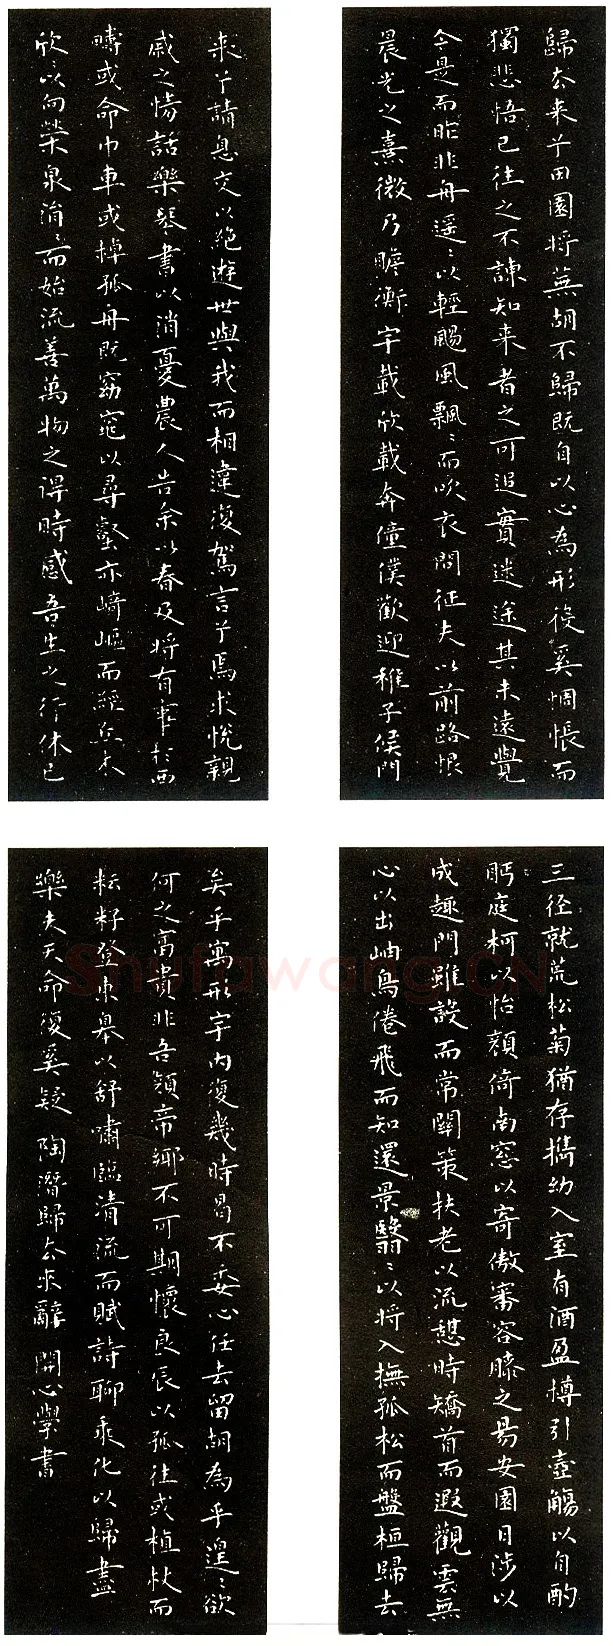 歸去来兮田園将蕪胡不歸既自以心為形役奚惆悵而
獨悲悟已往之不諫知来者之可追實迷途其未遠覺
今是而昨非舟遥〻以輕颺風飄〻而吹衣問征夫以前路恨
晨光之熹微乃瞻衡宇載欣載奔僮僕歡迎稚子候門
三径就荒松菊猶存攜幼入室有酒盈樽引壺觴以自酌
眄庭柯以怡顏倚南窓以寄傲審容膝之易安園日涉以
成趣門雖設而常關策扶老以流憩時矯首而遐觀雲無
心以出岫鳥倦飛而知還景翳〻以将入撫孤松而盤桓歸去
来兮請息交以絶遊世與我而相違復駕言兮焉求悅親
戚之情話樂琴書以消憂農人告余以春及将有事於西
疇或命巾車或棹孤舟既窈窕以尋壑亦崎嶇而經丘木
欣〻以向榮泉涓〻而始流善萬物之得時感吾生之行休已
矣乎寓形宇内復幾時曷不委心任去留胡為乎遑〻欲
何之富貴非吾願帝鄉不可期懷良辰以孤往或植杖而
耘耔登東皋以舒嘯臨清流而賦詩聊乘化以歸盡
樂夫天命復奚疑 陶潛歸去来辭 開心學書
Shufawang.CN